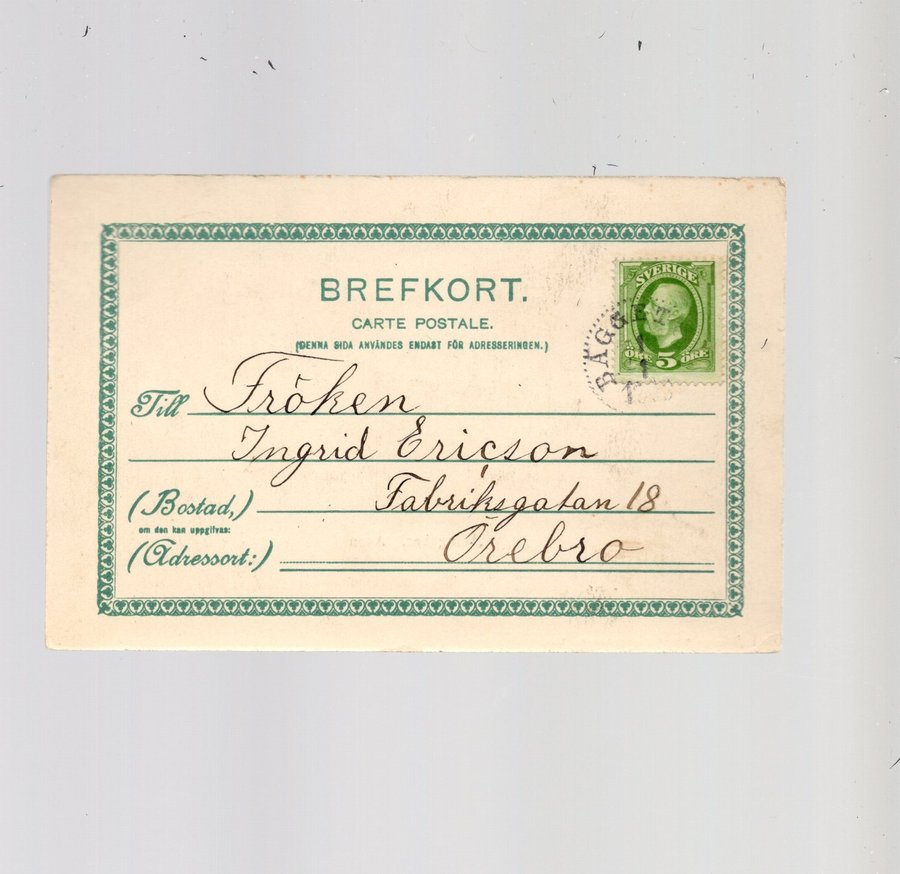 BREFKORT.
CARTE POSTALE.
(DENNA SIDA ANVÄNDES ENDAST FÖR ADRESSERINGEN.)
SVERIGE
ÖRE 5 ÖRE
BAGGET
1
1
Till Fröken
Ingrid Ericson
(Bostad,) Fabriksgatan 18
om den kan uppgifvas:
(Adressort:) Örebro